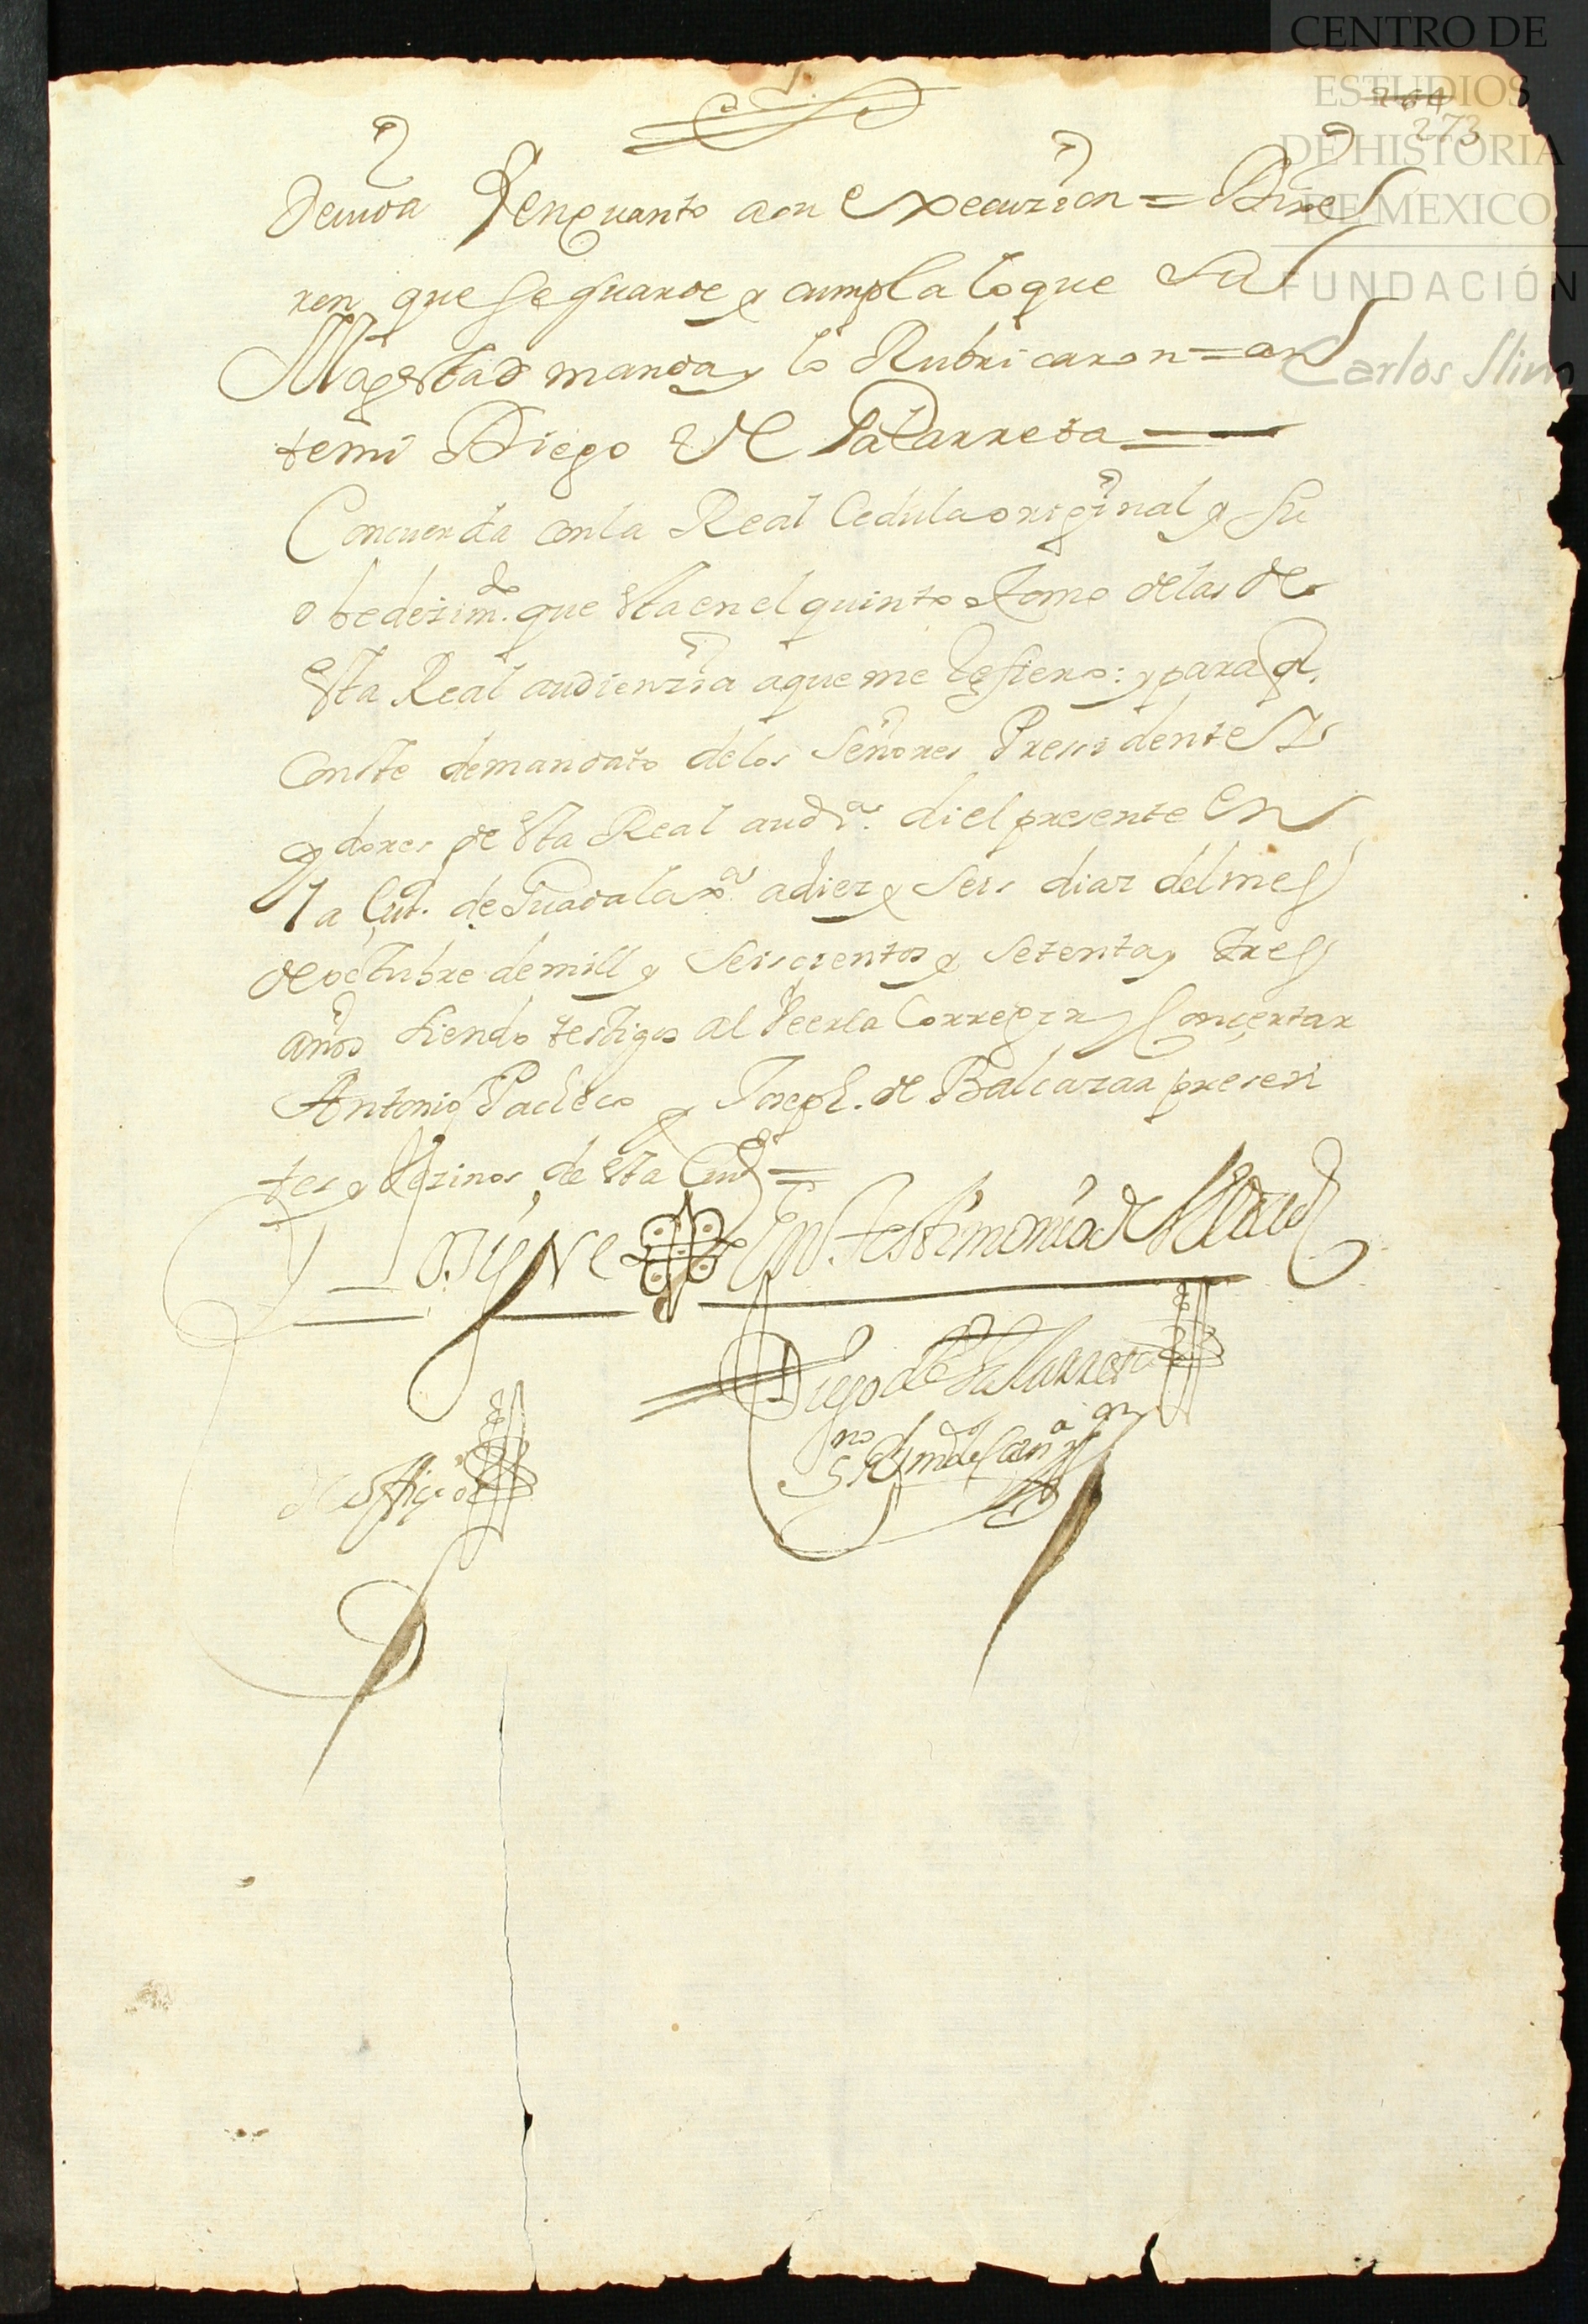 CENTRO DE
ESTUDIOS
DE HISTORIA
DE MEXICO
FUNDACIÓN
Carlos Slim
264
273
deuida Yenquanto asu execuzion = Dixe
ron que se guarde y cumpla loque Su
Magestad manda y lo Rubricaron = an
temi Diego de Pallarreta =
Concuerda con la Real Cedula original y su
obedezimdo. que esta en el quinto tomo de las de
esta Real audienzia aque me Refiero: y para q.
conste de mandato de los Señores Presidente
ydores de esta Real auda. di el presente En
la Ciud. de Guadalaxa. adiez y seis dias del mes
de octubre de mill y seiscientos y setenta y tres
años siendo testigos al Veerla Correxir y Conçertar
Antonio Pacheco y Joseph. de Balcazar presen
tes y Vezinos de esta Ciud =
En testimonio de Verdad
Diego de Pallarreta
de offiçio